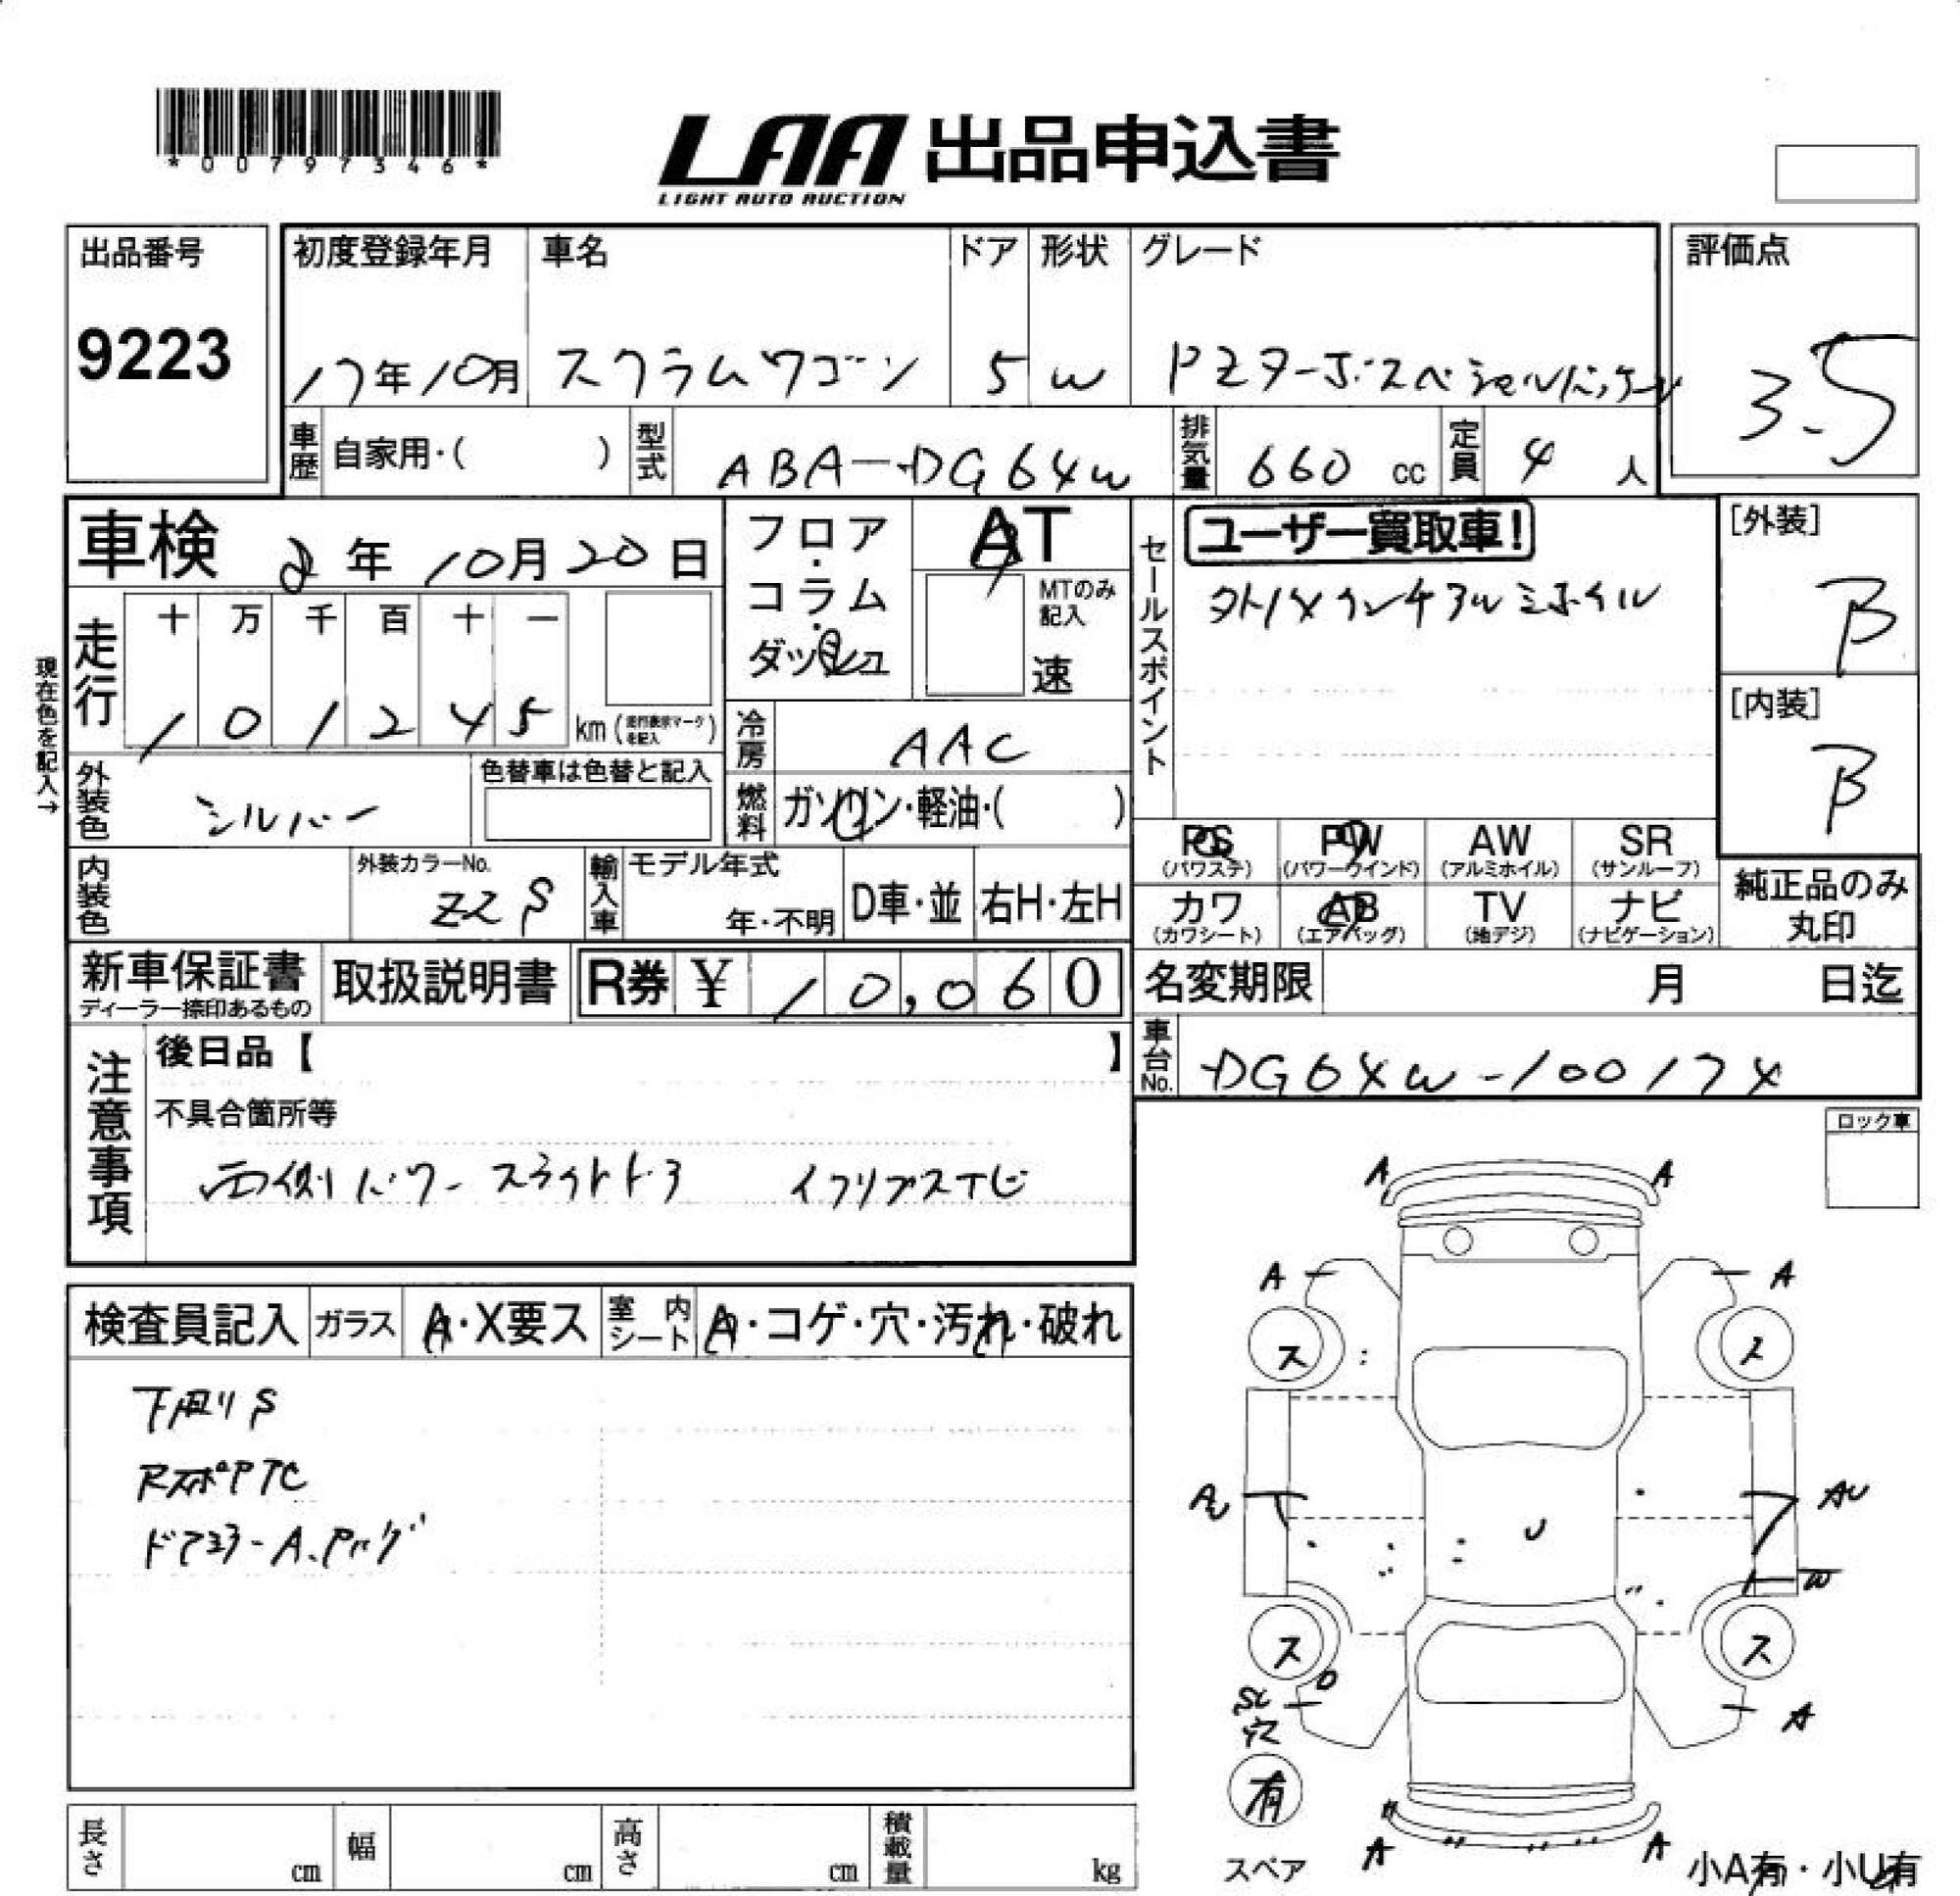 *00797346*
LAA 出品申込書
LIGHT AUTO AUCTION
出品番号
9223
初度登録年月 車名 ドア 形状 グレード
17年10月 スクラムワゴン 5 W PZターボスペシャルパッケージ
評価点
3.5
車歴 自家用・( ) 型式 ABA-DG64W 排気量 660 cc 定員 4 人
車検 2年 10月 20日
フロア・コラム・ダッシュ
AT
MTのみ記入
速
セールスポイント
ユーザー買取車!
外13インチアルミホイル
[外装]
B
[内装]
B
現在色を記入→
走行 十 万 千 百 十 一
1 0 1 2 4 5 km (走行表示マークを記入)
冷房 AAC
外装色 シルバー
色替車は色替と記入
燃料 ガソリン・軽油・( )
内装色
外装カラーNo.
Z2S
輸入車 モデル年式
年・不明 D車・並 右H・左H
PS (パワステ) PW (パワーウインド) AW (アルミホイル) SR (サンルーフ)
カワ (カワシート) AB (エアバッグ) TV (地デジ) ナビ (ナビゲーション)
純正品のみ丸印
新車保証書
ディーラー捺印あるもの
取扱説明書 R券 ¥ 10,060
名変期限 月 日迄
車台No. DG64W-100174
注意事項
後日品【 】
不具合箇所等
両側パワースライドドア
ロック車
検査員記入 ガラス A・X要ス 室内シート A・コゲ・穴・汚れ・破れ
下廻りS
ドアミラーA、
A A
A A
ス ス
AU AU
U
W
ス ス
穴
A
有
スペア
A A
小A有・小U有
長さ cm 幅 cm 高さ cm 積載量 kg